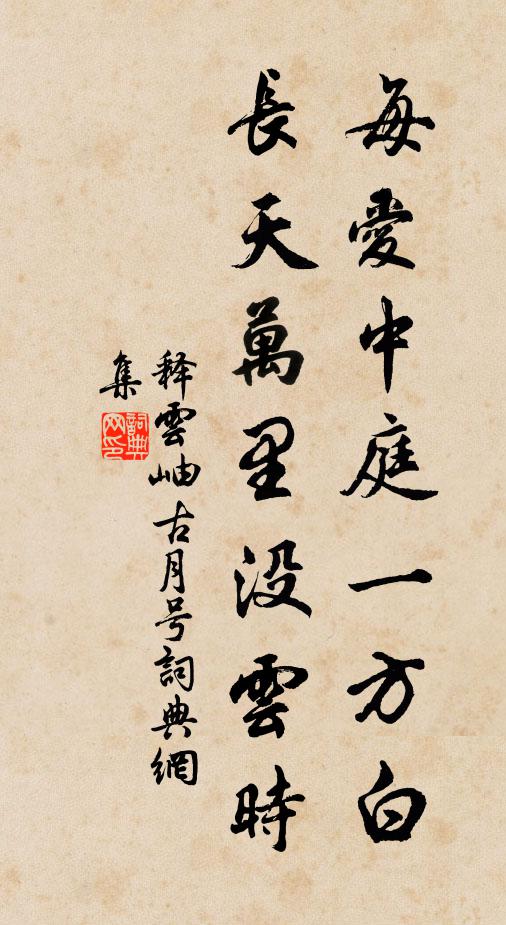 每愛中庭一方白
長天萬里没雲時
释雲岫古月号詞典網
集
詞典
网印